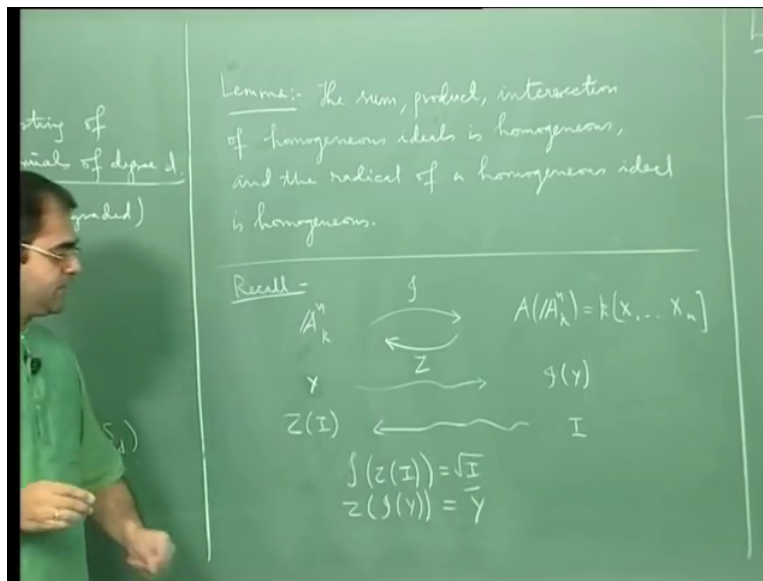 sting of
mials of degree d.
graded)
Lemma:- The sum, product, intersection
of homogeneous ideals is homogeneous,
and the radical of a homogeneous ideal
is homogeneous.
Recall -
𝒥
𝔸ⁿₖ A(𝔸ⁿₖ) = k[X₁ ... Xₙ]
Z
Y 𝒥(Y)
Z(I) I
𝒥(Z(I)) = √I
Z(𝒥(Y)) = Y̅